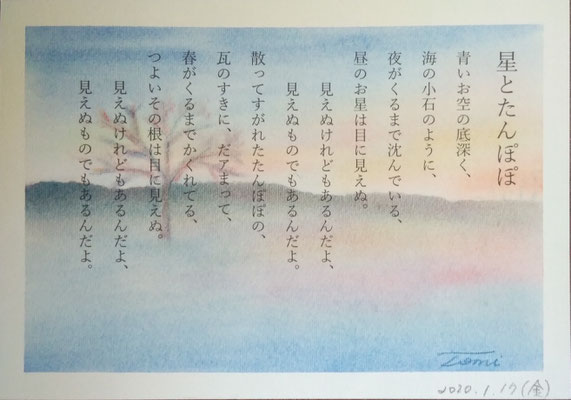 星とたんぽぽ
青いお空の底深く、
海の小石のように、
夜がくるまで沈んでいる、
昼のお星は目に見えぬ。
見えぬけれどもあるんだよ、
見えぬものでもあるんだよ。
散ってすがれたたんぽぽの、
瓦のすきに、だァまって、
春がくるまでかくれてる、
つよいその根は目に見えぬ。
見えぬけれどもあるんだよ、
見えぬものでもあるんだよ。
Tomi
2020.1.17(金)